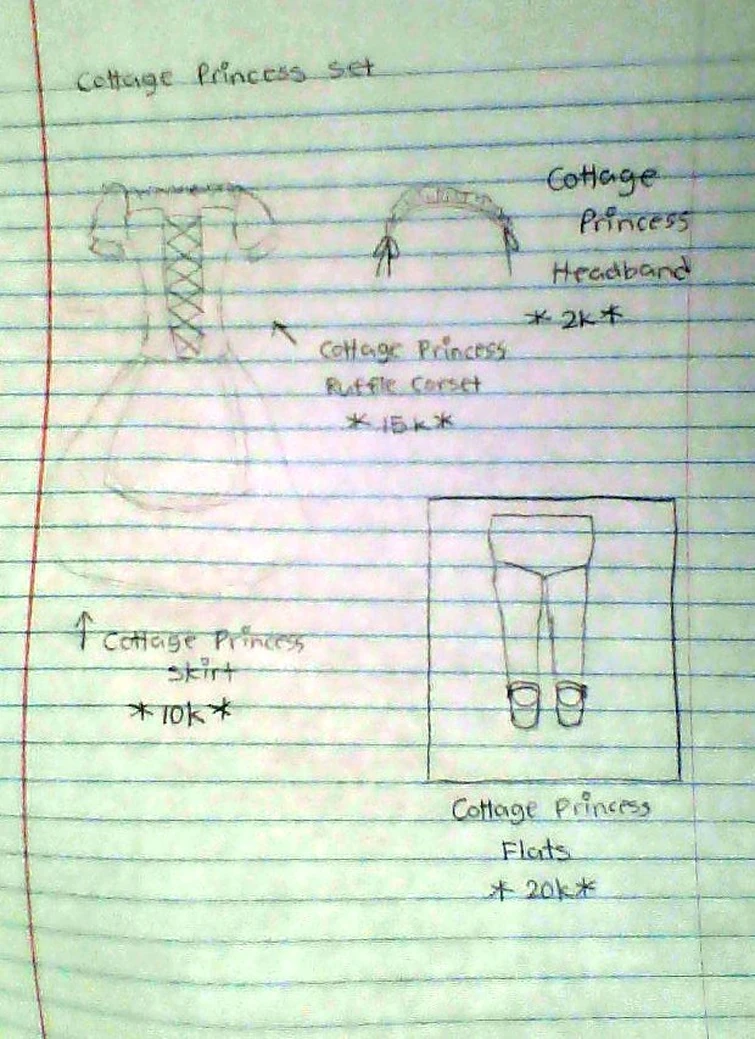 Cottage Princess set
Cottage
Princess
Headband
*2k*
Cottage Princess
Ruffle Corset
*15k*
Cottage Princess
Skirt
*10k*
Cottage Princess
Flats
*20k*